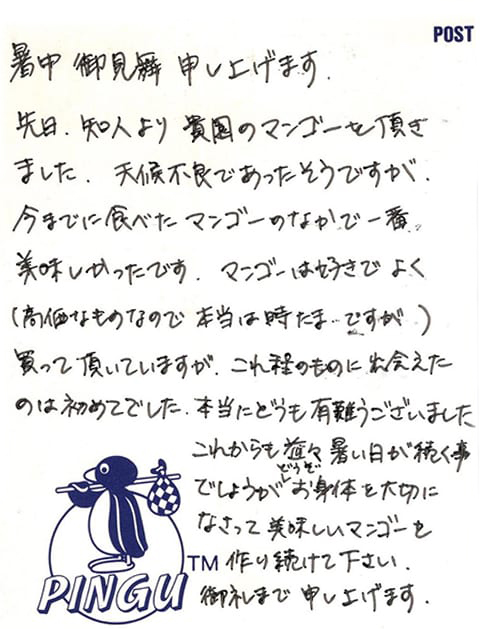 POST
暑中 御見舞 申し上げます.
先日. 知人より 貴園のマンゴーを頂き
ました. 天候不良であったそうですが.
今までに食べたマンゴーのなかで一番
美味しかったです. マンゴーは好きで よく
(高価なものなので 本当は時たま ですが)
買って頂いていますが. これ程のものに 出会えた
のは初めてでした. 本当にどうも 有難うございました
これからも 益々 暑い日が続く事
でしょうが どうぞ お身体を大切に
なさって美味しいマンゴーを
作り続けて下さい.
御礼まで 申し上げます.
PINGU TM